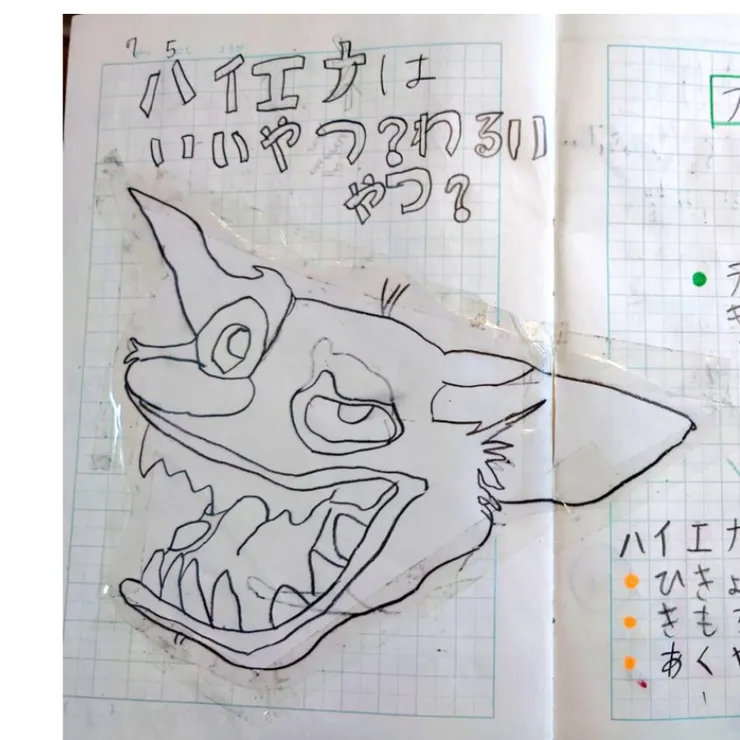 7 5
ハイエナは
いいやつ？わるい
やつ？
ハイエナ
ひきょ
きも
あく